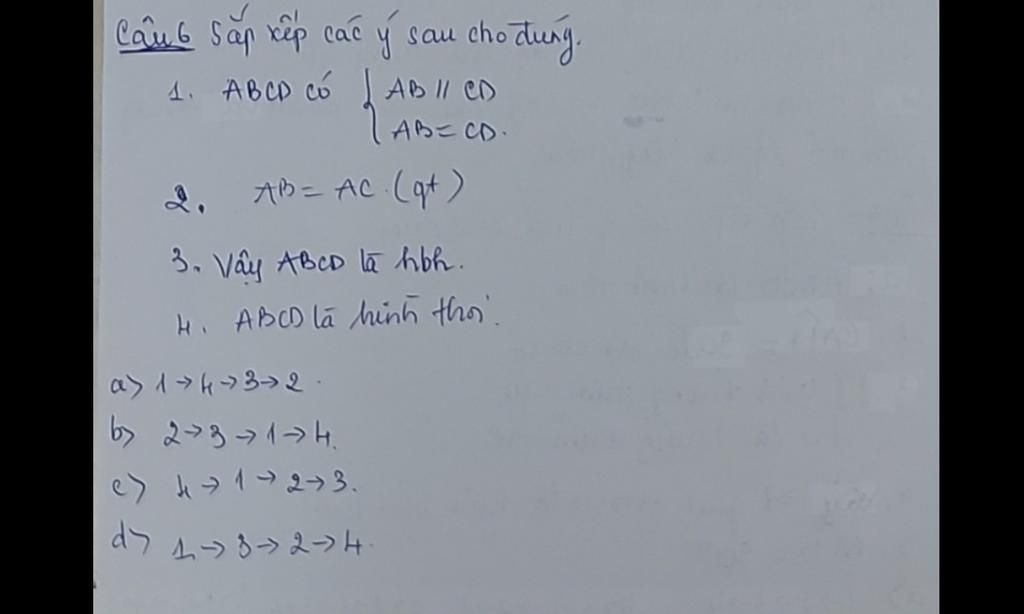 Câu 6 Sắp xếp các ý sau cho đúng.
1. ABCD có { AB // CD
AB = CD.
2. AB = AC. (gt)
3. Vậy ABCD là hbh.
4. ABCD là hình thoi.
a> 1 → 4 → 3 → 2.
b> 2 → 3 → 1 → 4.
c> 4 → 1 → 2 → 3.
d> 1 → 3 → 2 → 4.